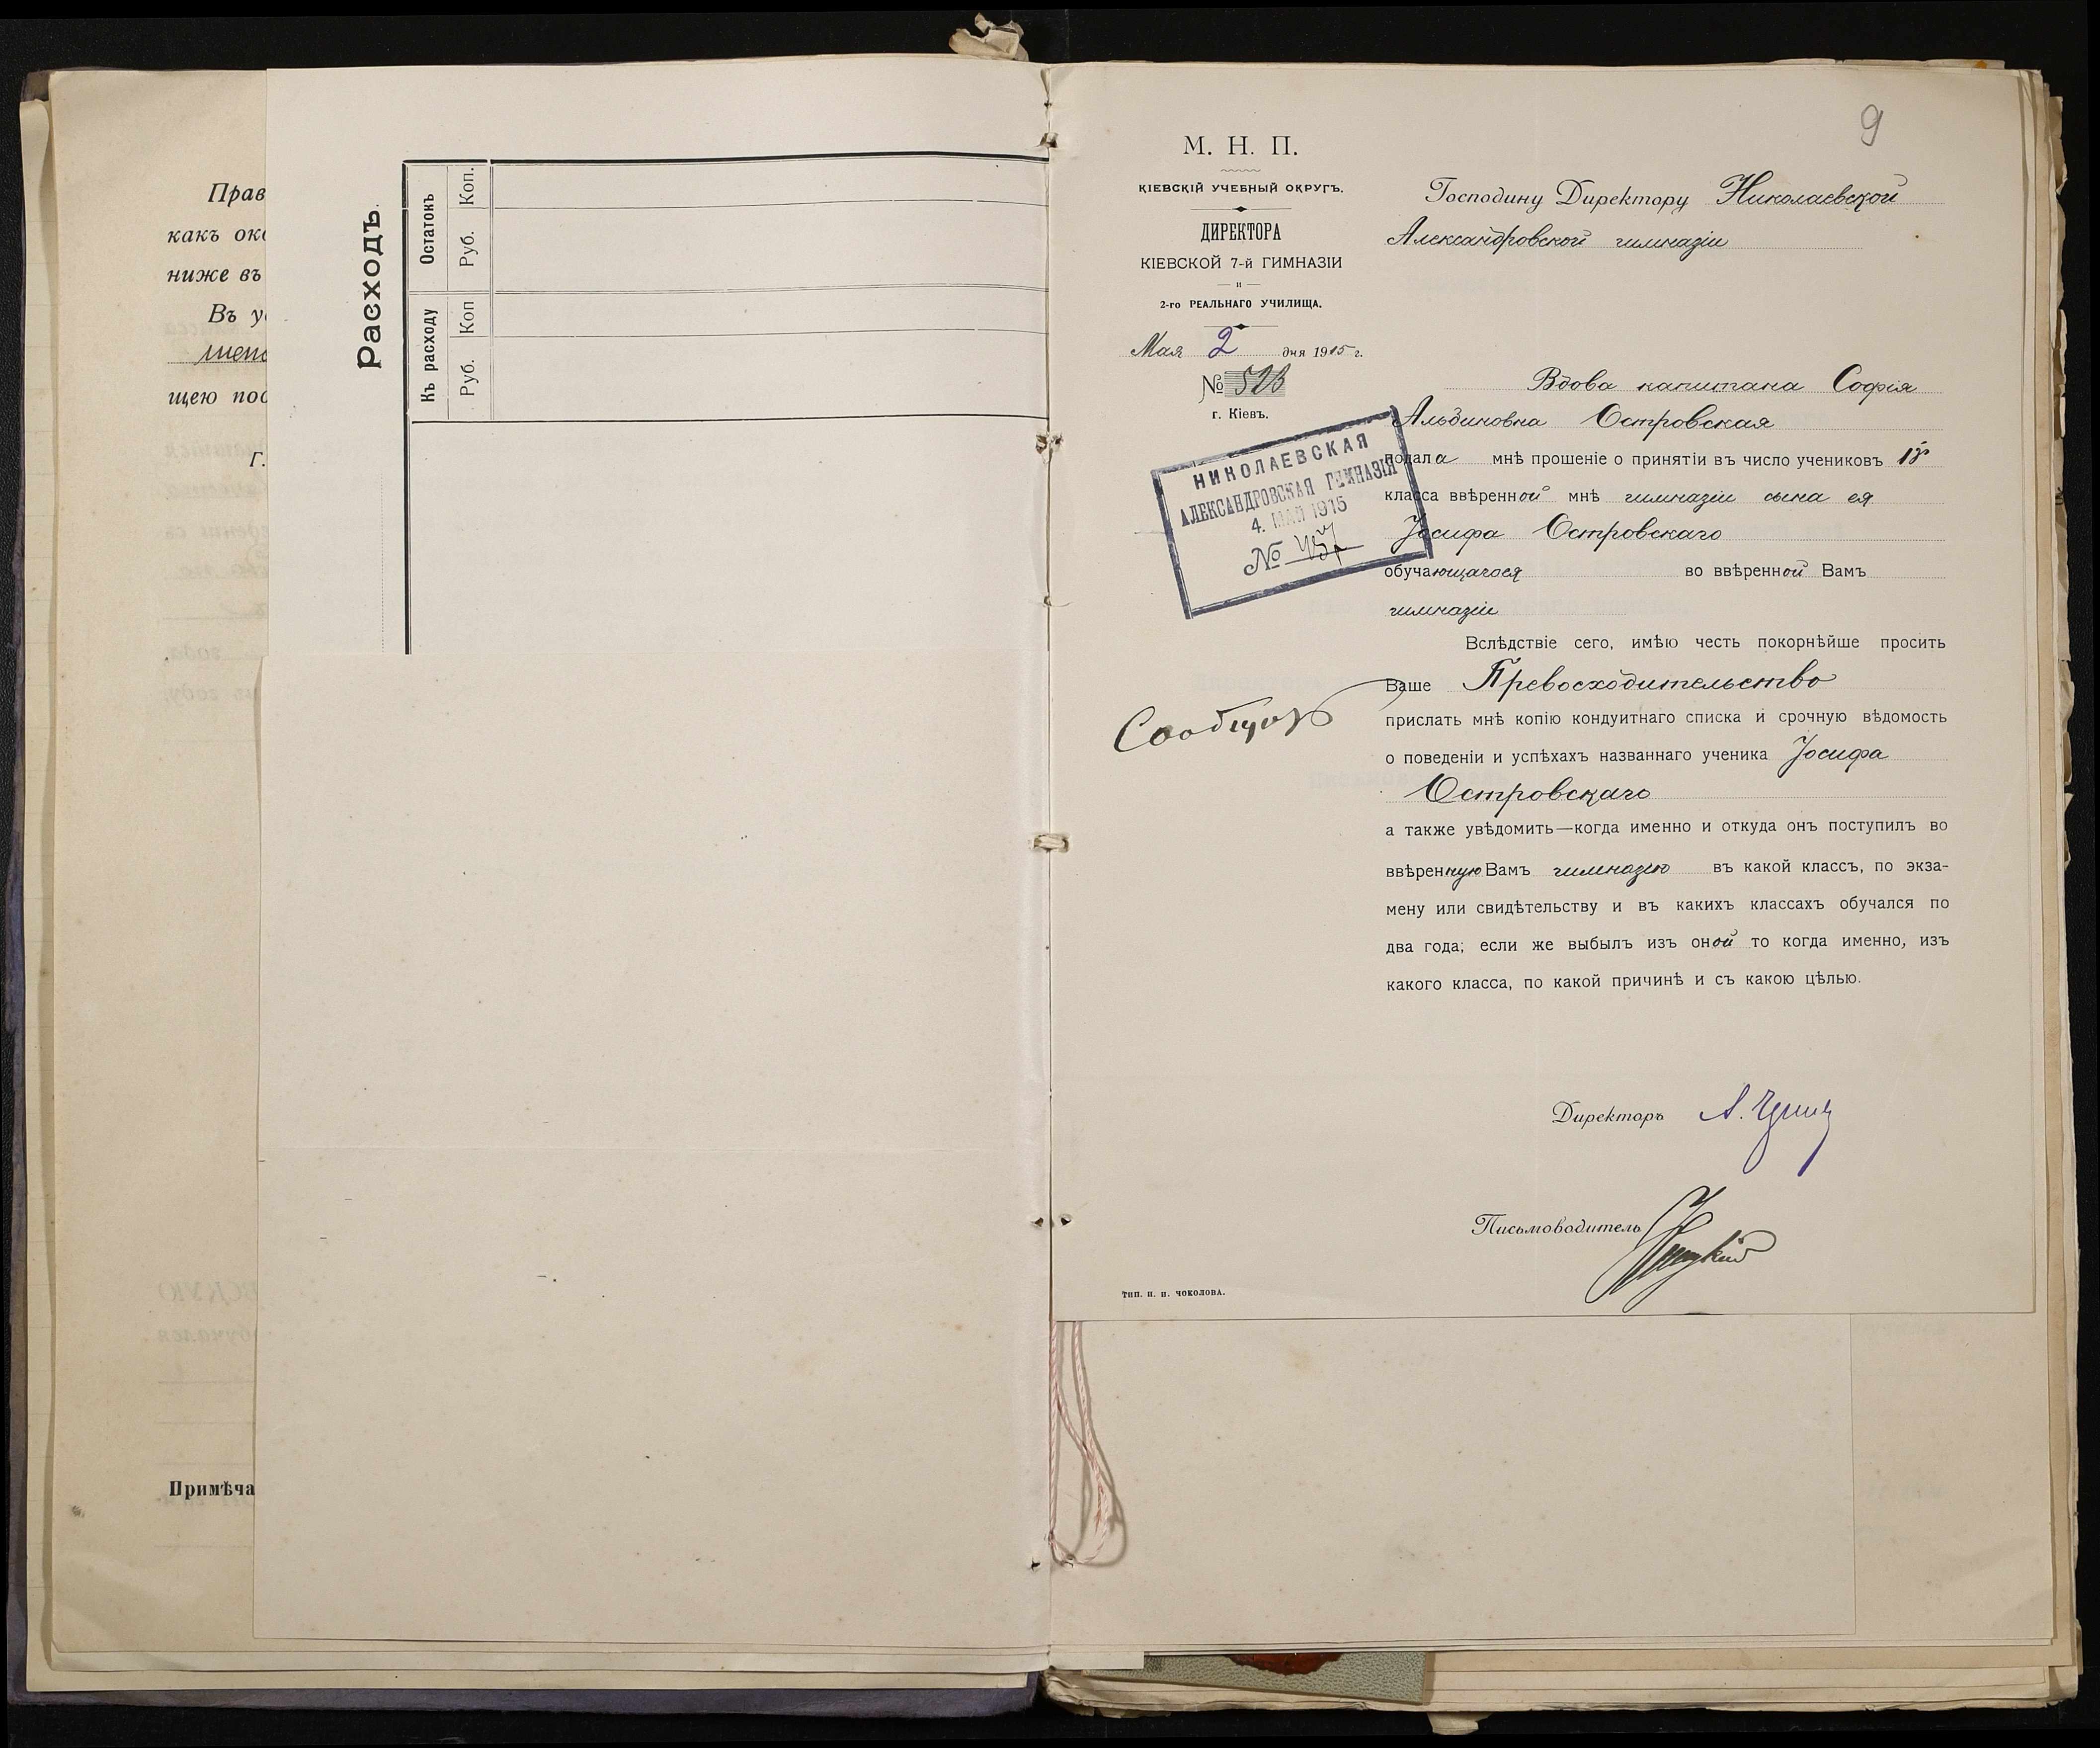 Прав
какъ око
ниже въ
Въ у
щею пос
Г.
Примѣча
Расходъ.
Остатокъ
Руб.
Коп.
Къ расходу
Руб.
Коп
9
М. Н. П.
КІЕВСКІЙ УЧЕБНЫЙ ОКРУГЪ.
ДИРЕКТОРА
КІЕВСКОЙ 7-й ГИМНАЗІИ
и
2-го РЕАЛЬНАГО УЧИЛИЩА.
Мая 2 дня 1915 г.
№ 523
г. Кіевъ.
НИКОЛАЕВСКАЯ
АЛЕКСАНДРОВСКАЯ ГИМНАЗІЯ
4. МАЙ 1915
№ 457
Господину Директору Николаевской
Александровской гимназіи
Вдова капитана Софія
Альбиновна Островская
подала мнѣ прошеніе о принятіи въ число учениковъ
класса ввѣренной мнѣ гимназіи сына ея
Іосифа Островскаго
обучающагося во ввѣренной Вамъ
гимназіи
Вслѣдствіе сего, имѣю честь покорнѣйше просить
Ваше Превосходительство
прислать мнѣ копію кондуитнаго списка и срочную вѣдомость
о поведеніи и успѣхахъ названнаго ученика Іосифа
Островскаго
а также увѣдомить—когда именно и откуда онъ поступилъ во
ввѣренную Вамъ гимназію въ какой классъ, по экза-
мену или свидѣтельству и въ какихъ классахъ обучался по
два года; если же выбылъ изъ оной то когда именно, изъ
какого класса, по какой причинѣ и съ какою цѣлью.
Директоръ А.
Письмоводитель
Тип. И. И. ЧОКОЛОВА.